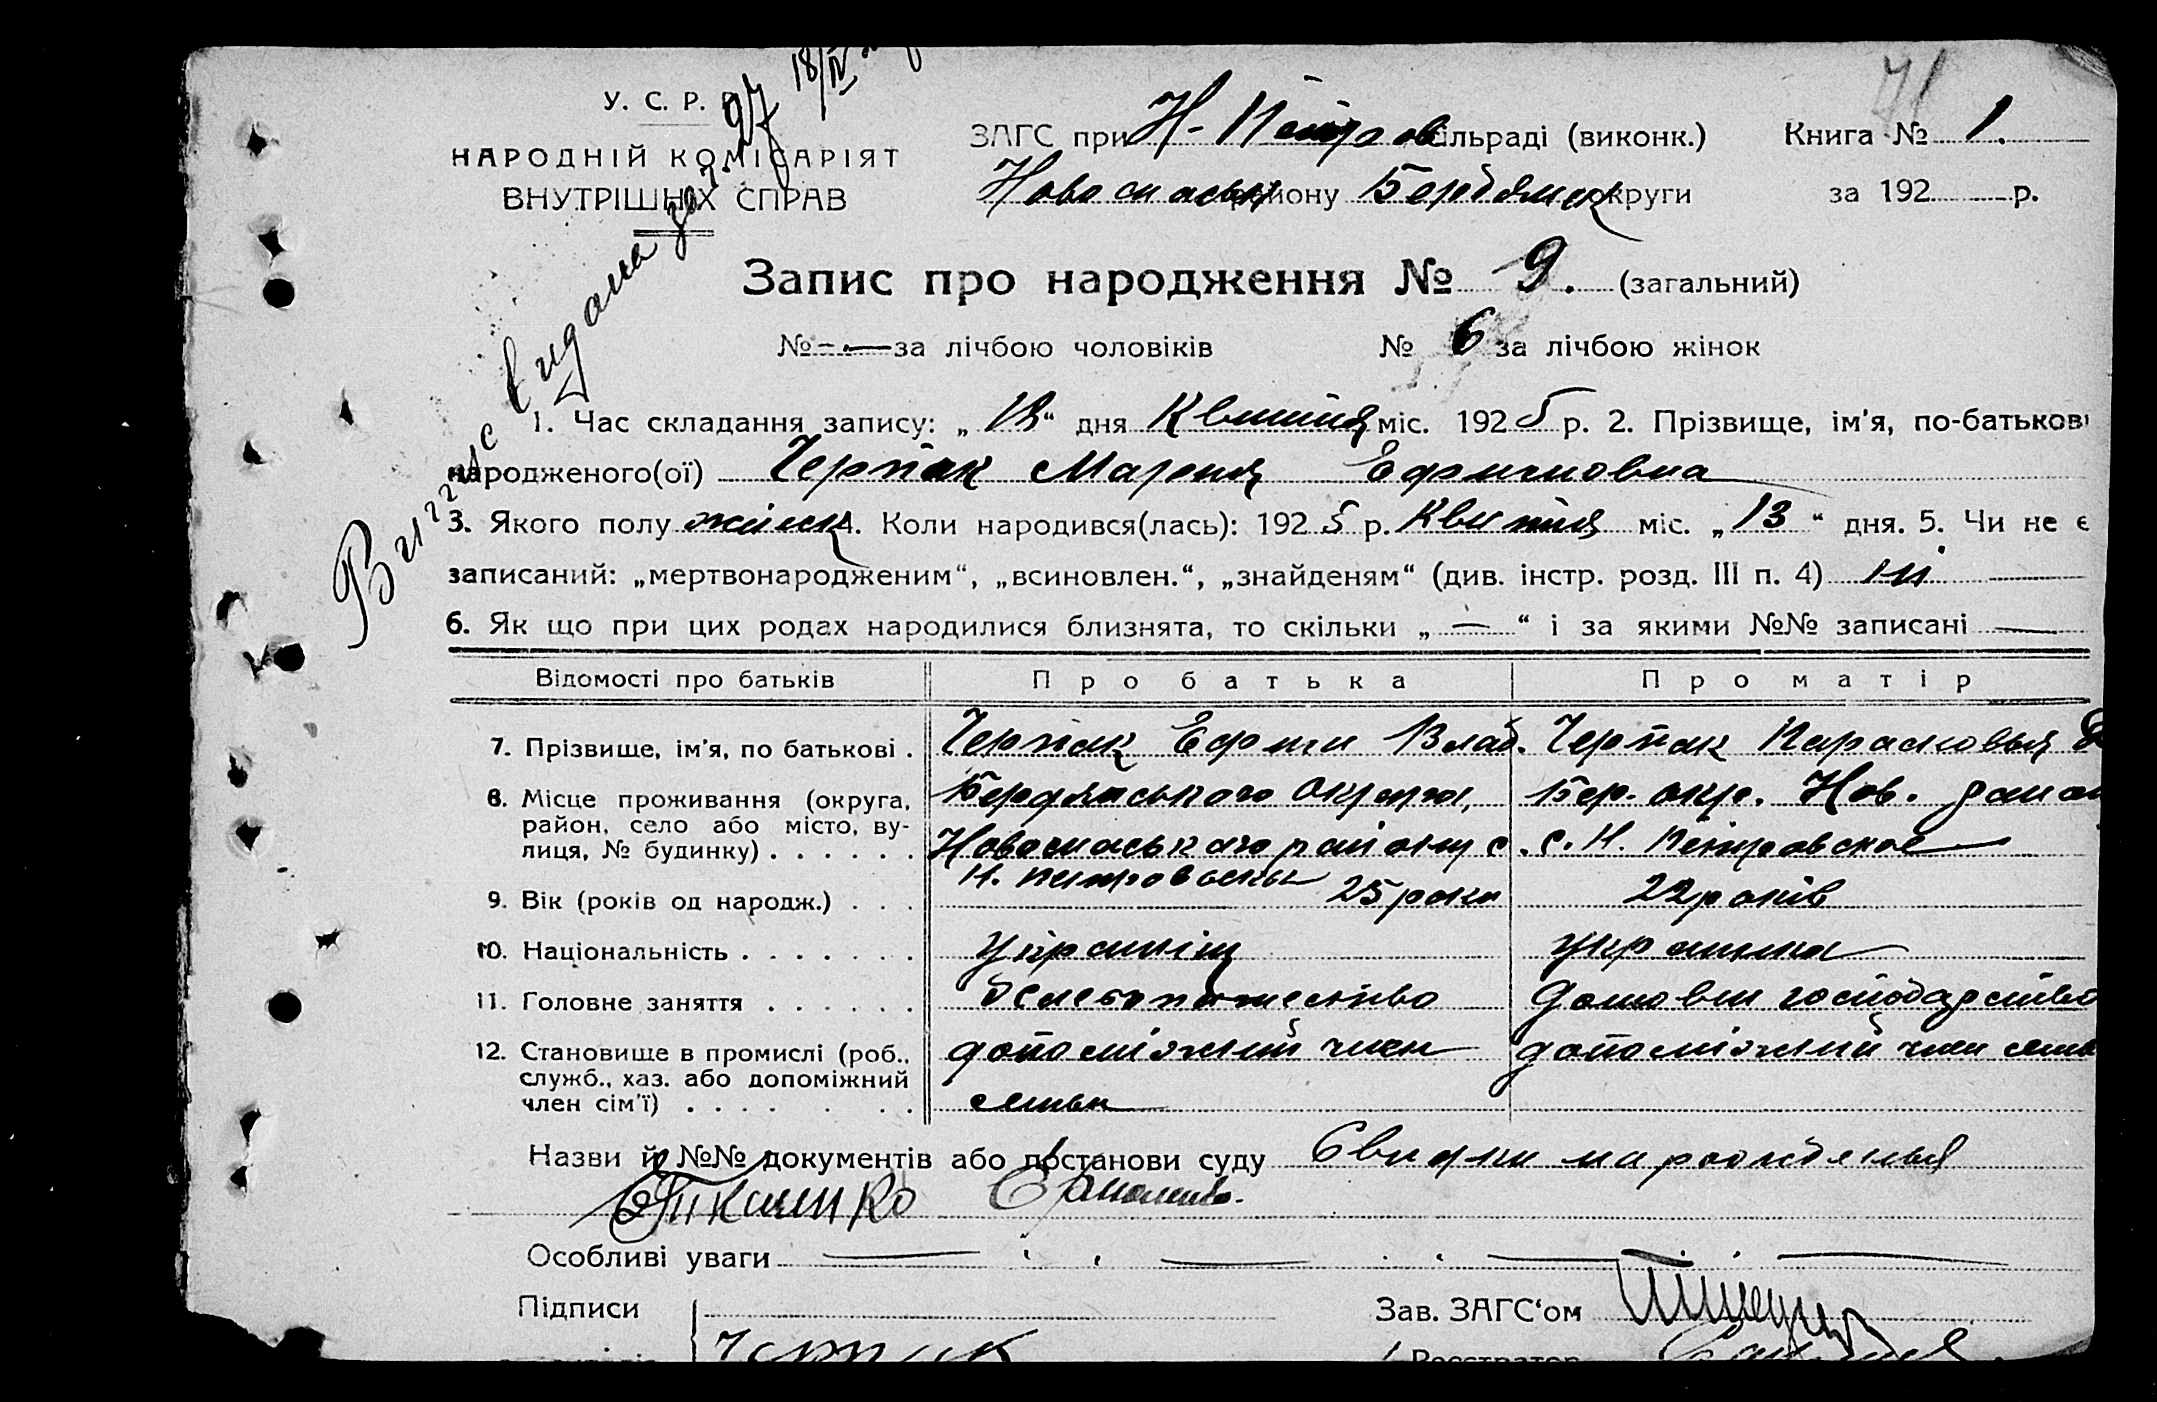 У. С. Р. Р.
НАРОДНІЙ КОМІСАРІЯТ
ВНУТРІШНІХ СПРАВ
Випис видана за № 27 18/IV
71
ЗАГС при Н-Петров сільраді (виконк.) Книга № 1.
Новоспаськ району Бердянск округи за 192 р.
Запис про народження № 9. (загальний)
№ — за лічбою чоловіків № 6 за лічбою жінок
1. Час складання запису: „ “ дня Квитня міс. 1925 р. 2. Прізвище, ім'я, по-батькові
народженого(ої) Черпак Мария Ефимовна
3. Якого полу жіноч 4. Коли народився(лась): 1925 р. Квитня міс. „13“ дня. 5. Чи не є
записаний: „мертвонародженим“, „всиновлен.“, „знайденям“ (див. інстр. розд. III п. 4) ні
6. Як що при цих родах народилися близнята, то скільки „—“ і за якими №№ записані —
Відомості про батьків Про батька Про матір
7. Прізвище, ім'я, по батькові . Черпак Ефим Влад. Черпак Парасковья
8. Місце проживання (округа, Бердянського Округи, Бер. окр. Нов. район
район, село або місто, ву-
лиця, № будинку) . . . . . . Новоспаського району с. с. Н. Петровское
Н. Петровськи
9. Вік (років од народж.) . . . 25 роки 22 років
10. Національність . . . . . . . Україніц українка
11. Головне заняття . . . . . . Домовы господарство
12. Становище в промислі (роб., допоміжний член допоміжний член семьи
служб., хаз. або допоміжний
член сім'ї) . . . . . . . семьи
Назви й №№ документів або постанови суду
Особливі уваги —
Підписи Зав. ЗАГС‘ом
Черпак Реєстратор